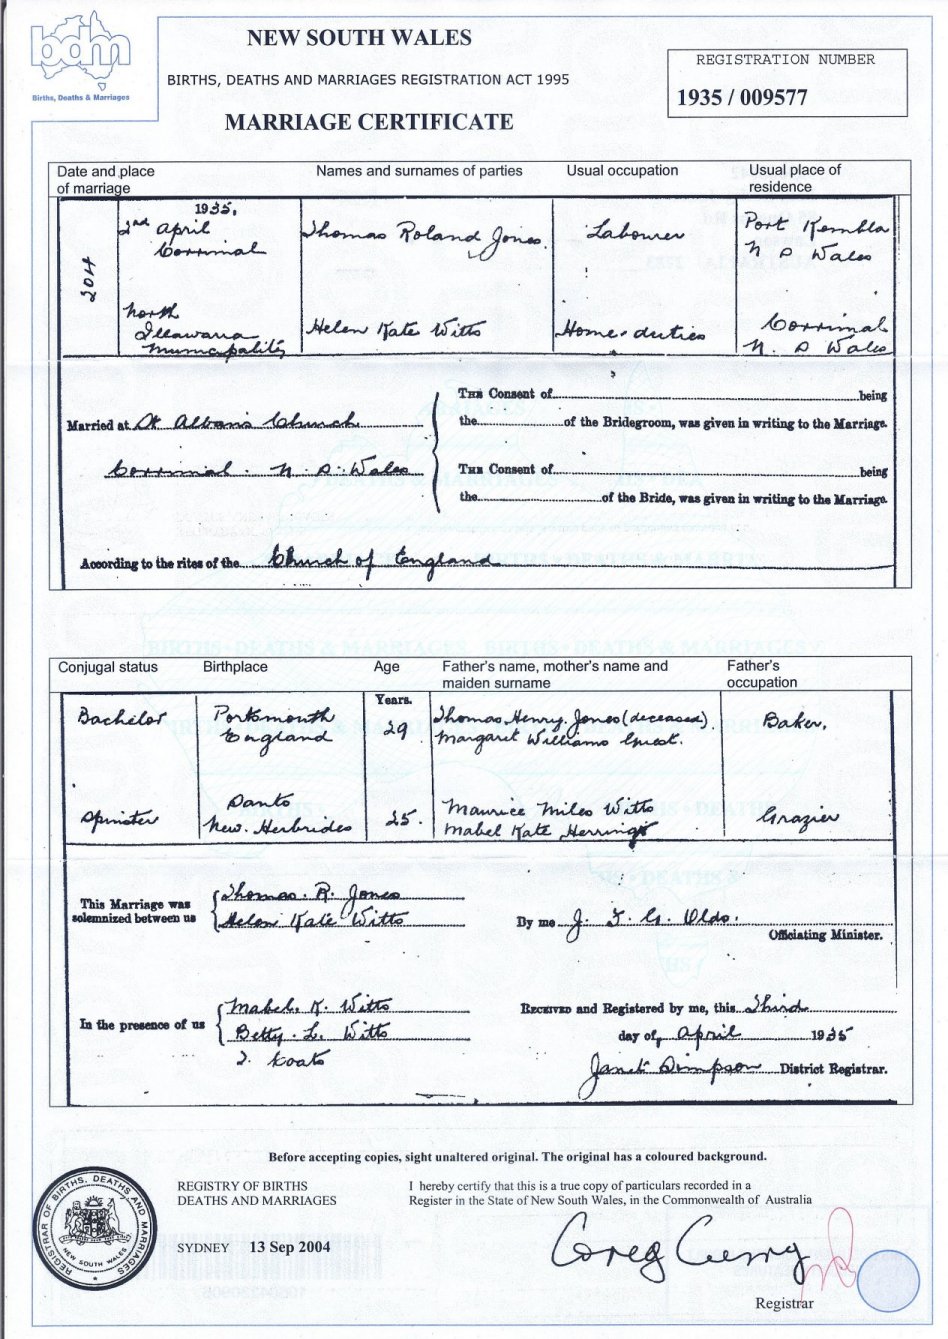 bdm
Births, Deaths & Marriages
NEW SOUTH WALES
BIRTHS, DEATHS AND MARRIAGES REGISTRATION ACT 1995
MARRIAGE CERTIFICATE
REGISTRATION NUMBER
1935 / 009577
Date and place of marriage
Names and surnames of parties
Usual occupation
Usual place of residence
1935.
2nd April
Corrimal
Thomas Roland Jones
Labourer
Port Kembla
N S Wales
North
Illawarra
Municipality
Helen Kate Witts
Home duties
Corrimal
N. S Wales
Married at St Albans Church
Corrimal. N. S. Wales
THE Consent of being
the of the Bridegroom, was given in writing to the Marriage.
THE Consent of being
the of the Bride, was given in writing to the Marriage.
According to the rites of the Church of England
Conjugal status
Birthplace
Age
Father's name, mother's name and maiden surname
Father's occupation
Years.
Bachelor
Portsmouth
England
29
Thomas Henry Jones (deceased)
Margaret Williams
Baker.
Spinster
Santo
New. Herbrides
25.
Maurice Miles Witts
Mabel Kate Herring
Grazier
This Marriage was
solemnized between us
Thomas. R. Jones
Helen Kate Witts
By me J. T. G. Olds.
Officiating Minister.
In the presence of us
Mabel. K. Witts
Betty. L. Witts
J. Coats
RECEIVED and Registered by me, this Third
day of April 1935
Janet Simpson District Registrar.
Before accepting copies, sight unaltered original. The original has a coloured background.
REGISTRY OF BIRTHS
DEATHS AND MARRIAGES
SYDNEY 13 Sep 2004
I hereby certify that this is a true copy of particulars recorded in a
Register in the State of New South Wales, in the Commonwealth of Australia
REGISTRAR OF BIRTHS, DEATHS AND MARRIAGES
NEW SOUTH WALES
Registrar